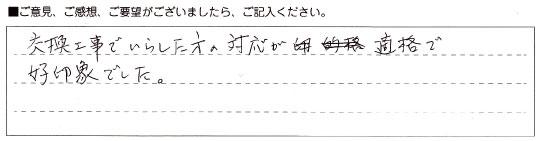 ■ご意見、ご感想、ご要望がございましたら、ご記入ください。
交換工事でいらした方の対応が 適格で
好印象でした。